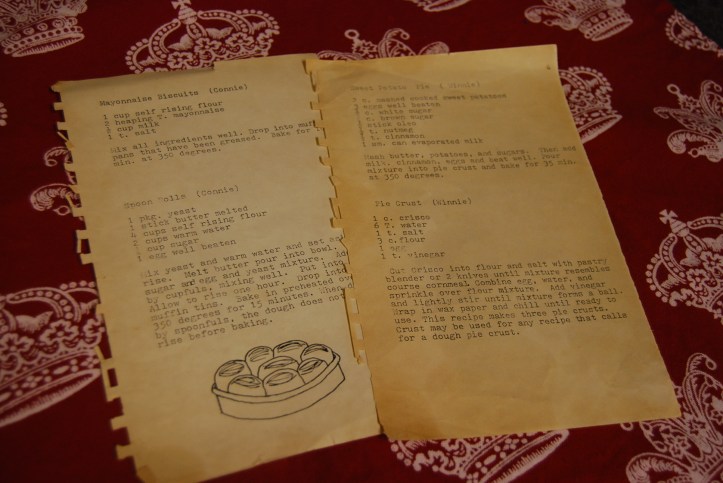 Mayonnaise Biscuits (Connie)
1 cup self rising flour
2 heaping T. mayonnaise
cup milk
1 t. salt
Mix all ingredients well. Drop into muf
pans that have been greased. Bake for
min. at 350 degrees.
Spoon Rolls (Connie)
1 pkg. yeast
1 stick butter melted
4 cups self rising flour
2 cups warm water
cup sugar
1 egg well beaten
Mix yeast and warm water and set
rise. Melt butter pour into bowl.
sugar and egg and yeast mixture. Ad
by cupfuls, mixing well. Put into
Allow to rise one hour. Drop into
muffin tins. Bake in preheated ov
350 degrees for 15 minutes. When
by spoonfuls, the dough does not
rise before baking.
Sweet Potato Pie (Winnie)
c. mashed cooked sweet potatoes
eggs well beaten
c. white sugar
c. brown sugar
stick oleo
t. nutmeg
t. cinnamon
1 sm. can evaporated milk
Mash butter, potatoes, and sugars. Then add
milk, cinnamon, eggs and beat well. Pour
mixture into pie crust and bake for 35 min.
at 350 degrees.
Pie Crust (Winnie)
1 c. crisco
6 T. water
1 t. salt
3 c.flour
1 egg
1 t. vinegar
Cut Crisco into flour and salt with pastry
blender or 2 knives until mixture resembles
course cornmeal Combine egg, water, and
sprinkle over flour mixture. Add vinegar
and lightly stir until mixture forms a ball.
Wrap in wax paper and chill until ready to
use. This recipe makes three pie crusts.
Crust may be used for any recipe that calls
for a dough pie crust.